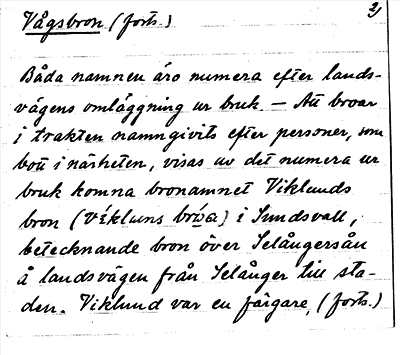 Vågsbron (forts.) 2)
Båda namnen äro numera efter lands-
vägens omläggning ur bruk. — Att broar
i trakten namngivits efter personer, som
bott i närheten, visas av det numera ur
bruk komna bronamnet Viklunds
bron (víkluns brо́na) i Sundsvall,
betecknande bron över Selångersån
å landsvägen från Selånger till sta-
den. Viklund var en färgare, (forts.)